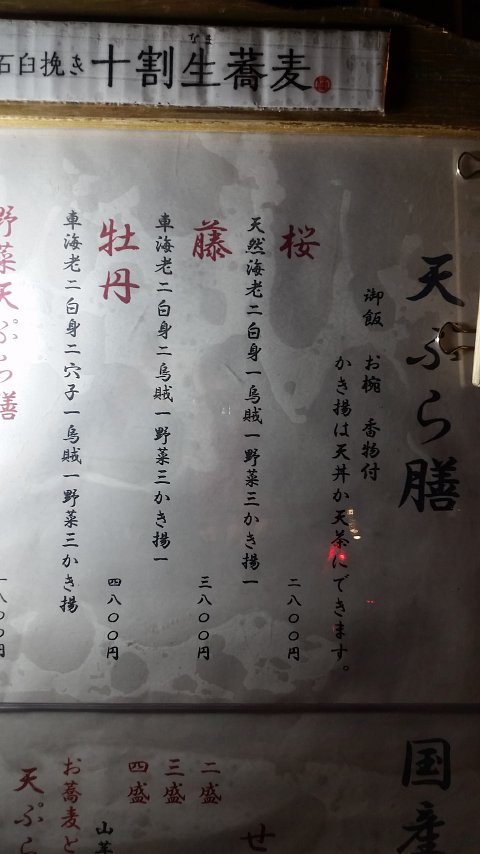 石臼挽き 十割生蕎麦
なま
天ぷら膳
御飯 お椀 香物付
かき揚は天丼か天茶にできます。
桜
二八〇〇円
天然海老二白身一烏賊一野菜三かき揚一
藤
三八〇〇円
車海老二白身二烏賊一野菜三かき揚一
牡丹
四八〇〇円
車海老二白身二穴子一烏賊一野菜三かき揚
野菜天ぷら膳
八〇〇円
国産
せ
二盛
三盛
四盛
お蕎麦と
天ぷら